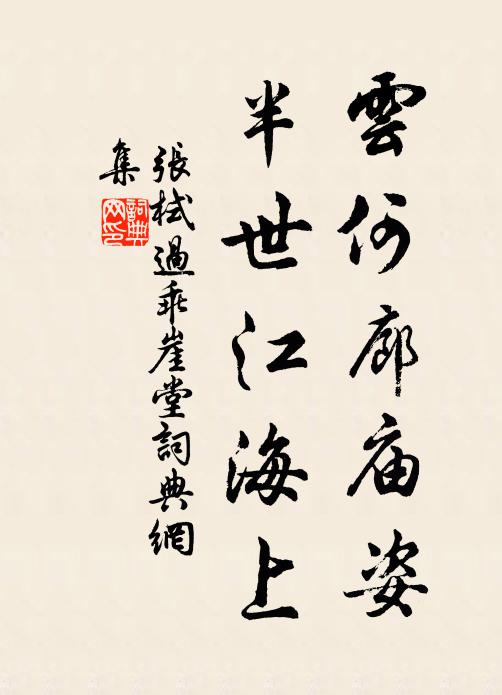 雲何廊庙姿
半世江海上
張栻過乖崖堂詞典網
集
詞典
网印